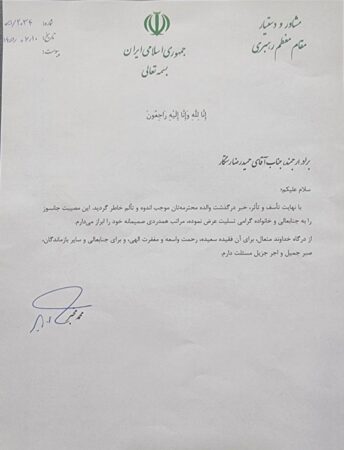 مشاور و دستیار
مقام معظم رهبری
جمهوری اسلامی ایران
بسمه تعالی
شماره:
تاریخ:
پیوست:
إنّا لِلّهِ وَإنّا إلَیْهِ رَاجِعُونَ
برادر ارجمند، جناب آقای حمیدرضا رستگار
سلام علیکم؛
با نهایت تأسف و تأثر، خبر درگذشت والده محترمه‌تان موجب اندوه و تألم خاطر گردید. این مصیبت جانسوز
را به جنابعالی و خانواده گرامی تسلیت عرض نموده، مراتب همدردی صمیمانه خود را ابراز می‌دارم.
از درگاه خداوند متعال، برای آن فقیده سعیده، رحمت واسعه و مغفرت الهی، و برای جنابعالی و سایر بازماندگان،
صبر جمیل و اجر جزیل مسئلت دارم.
محمد مخبر